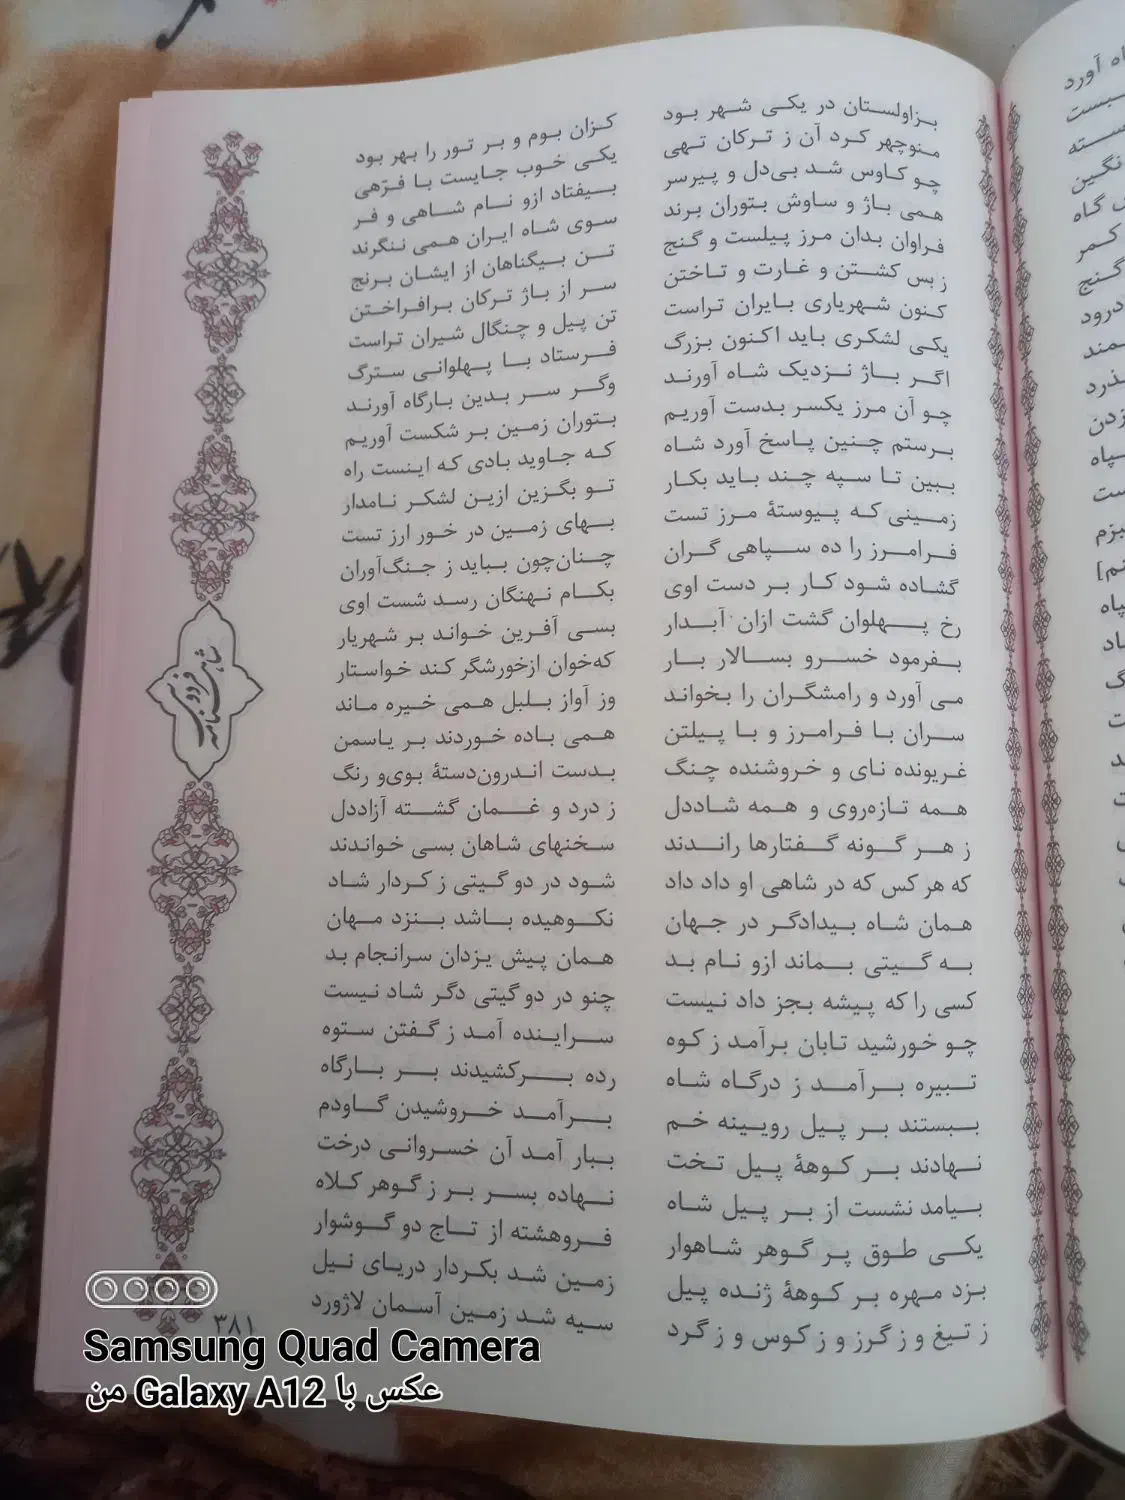 بزاولستان در یکی شهر بود کزان بوم و بر تور را بهر بود
منوچهر کرد آن ز ترکان تهی یکی خوب جایست با فرّهی
چو کاوس شد بی‌دل و پیرسر بیفتاد ازو نام شاهی و فر
همی باژ و ساوش بتوران برند سوی شاه ایران همی ننگرند
فراوان بدان مرز پیلست و گنج تن بیگناهان از ایشان برنج
ز بس کشتن و غارت و تاختن سر از باژ ترکان برافراختن
کنون شهریاری بایران تراست تن پیل و چنگال شیران تراست
یکی لشکری باید اکنون بزرگ فرستاد با پهلوانی سترگ
اگر باژ نزدیک شاه آورند وگر سر بدین بارگاه آورند
چو آن مرز یکسر بدست آوریم بتوران زمین بر شکست آوریم
برستم چنین پاسخ آورد شاه که جاوید بادی که اینست راه
ببین تا سپه چند باید بکار تو بگزین ازین لشکر نامدار
زمینی که پیوستهٔ مرز تست بهای زمین در خور ارز تست
فرامرز را ده سپاهی گران چنان‌چون بباید ز جنگ‌آوران
گشاده شود کار بر دست اوی بکام نهنگان رسد شست اوی
رخ پهلوان گشت ازان آبدار بسی آفرین خواند بر شهریار
بفرمود خسرو بسالار بار که‌خوان ازخورشگر کند خواستار
می آورد و رامشگران را بخواند وز آواز بلبل همی خیره ماند
سران با فرامرز و با پیلتن همی باده خوردند بر یاسمن
غریونده نای و خروشنده چنگ بدست اندرون‌دستهٔ بوی‌و رنگ
همه تازه‌روی و همه شاددل ز درد و غمان گشته آزاددل
ز هر گونه گفتارها راندند سخنهای شاهان بسی خواندند
که هر کس که در شاهی او داد داد شود در دو گیتی ز کردار شاد
همان شاه بیدادگر در جهان نکوهیده باشد بنزد مهان
به گیتی بماند ازو نام بد همان پیش یزدان سرانجام بد
کسی را که پیشه بجز داد نیست چنو در دو گیتی دگر شاد نیست
چو خورشید تابان برآمد ز کوه سراینده آمد ز گفتن ستوه
تبیره برآمد ز درگاه شاه رده برکشیدند بر بارگاه
ببستند بر پیل رویینه خم برآمد خروشیدن گاودم
نهادند بر کوههٔ پیل تخت ببار آمد آن خسروانی درخت
بیامد نشست از بر پیل شاه نهاده بسر بر ز گوهر کلاه
یکی طوق پر گوهر شاهوار فروهشته از تاج دو گوشوار
بزد مهره بر کوههٔ ژنده پیل زمین شد بکردار دریای نیل
ز تیغ و ز گرز و ز کوس و ز گرد سیه شد زمین آسمان لاژورد
شاهنامه فردوسی
۳۸۱
اه آورد
نگین
گاه
کمر
گنج
درود
زدن
Samsung Quad Camera
عکس با Galaxy A12 من